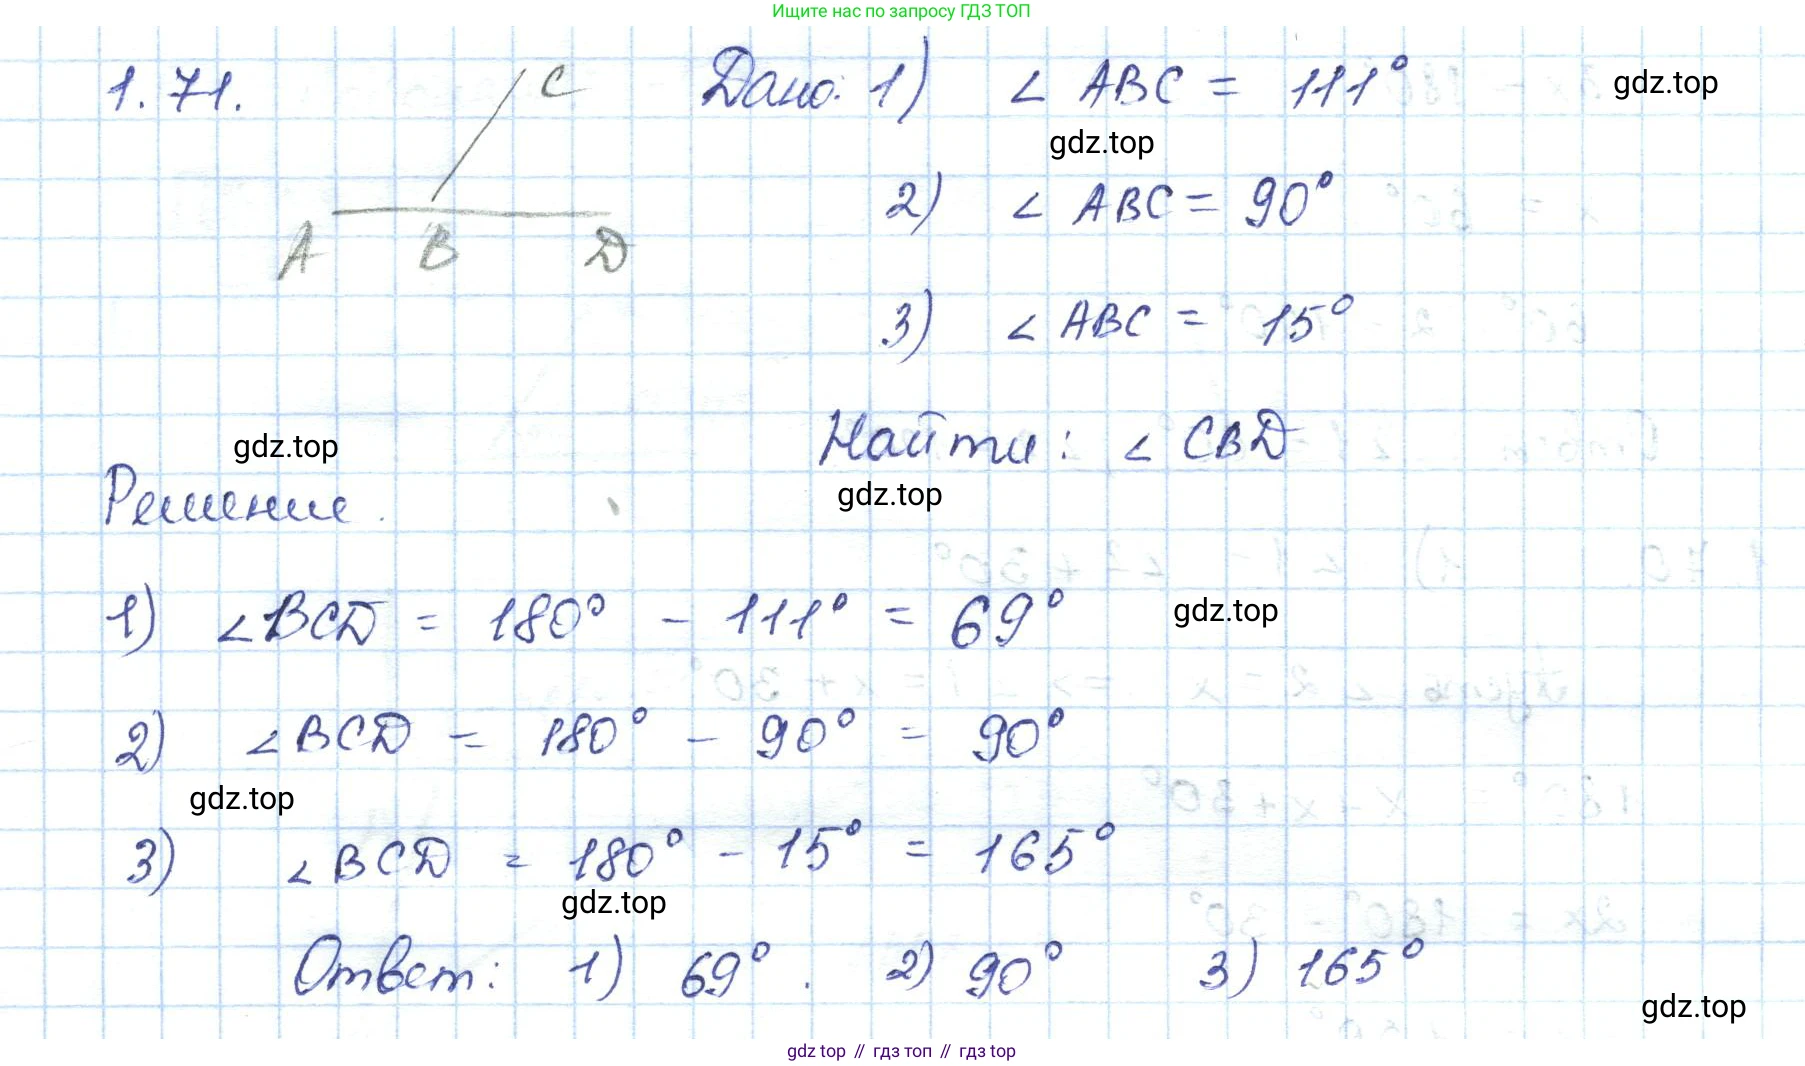 Ищите нас по запросу ГДЗ ТОП
1.71.
C
A B D
Дано: 1) ∠ ABC = 111°
gdz.top
gdz.top
2) ∠ ABC = 90°
3) ∠ ABC = 15°
Найти: ∠ CBD
gdz.top
gdz.top
Решение.
1) ∠BCD = 180° - 111° = 69°
gdz.top
2) ∠BCD = 180° - 90° = 90°
gdz.top
3) ∠BCD = 180° - 15° = 165°
gdz.top
Ответ: 1) 69°. 2) 90° 3) 165°
gdz.top
gdz top // гдз топ // гдз top